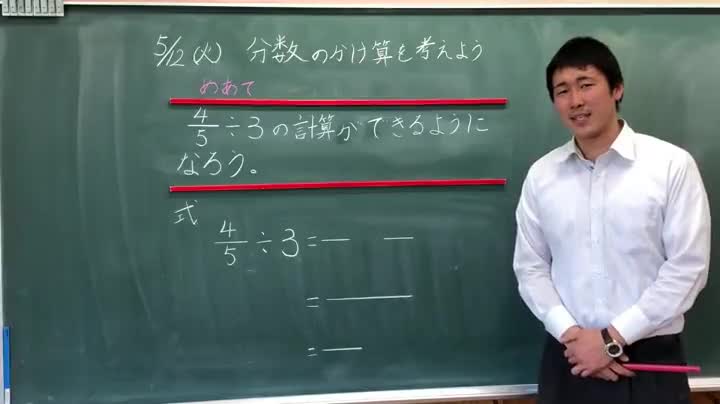 5/12(火) 分数のかけ算を考えよう
めあて
4/5÷3の計算ができるように
なろう。
式
4/5÷3=― ―
=―
=―